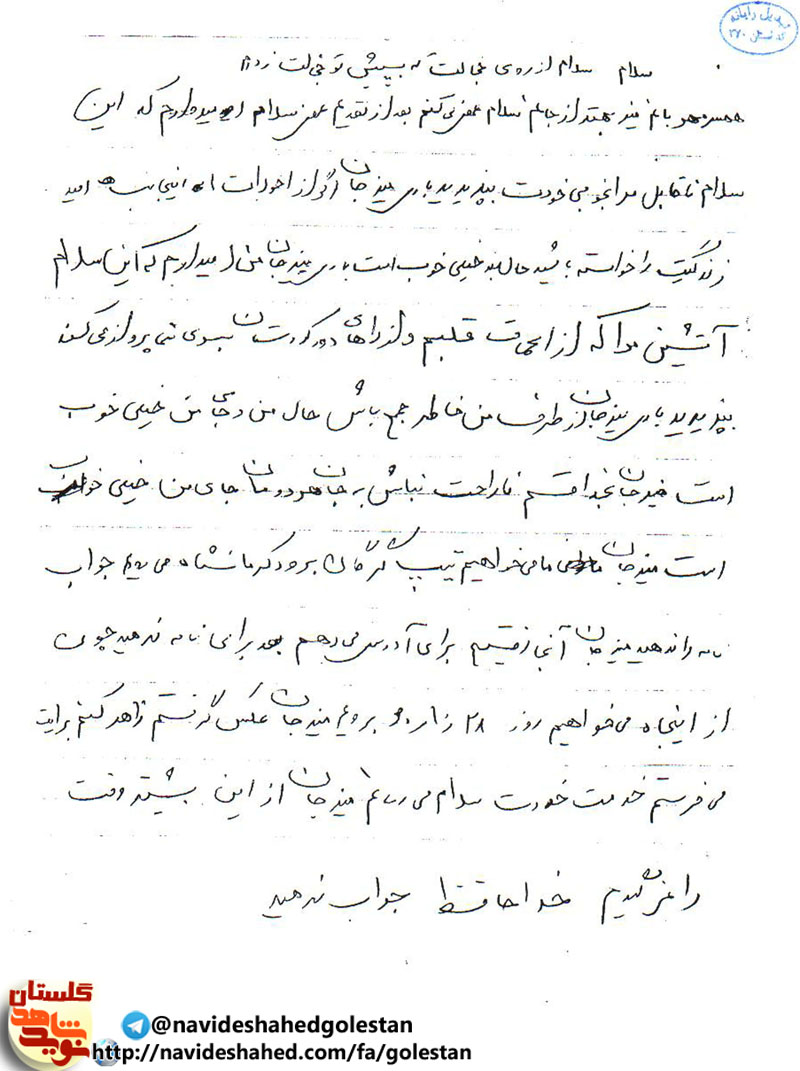 تبدیل رایانه
کد تسکن ۳۷۰
سلام سلام از روی خجالت که به پیش تو خجالت زده
همسر منیر بهتر از جانم سلام عرض می کنم بعد از تقدیم عرض سلام امیدوارم که این
سلام ناقابل مرا بخوبی خودت بپذیرید باری منیر جان اگر از احوالات اینجانب امید
زندگیت را خواسته باشید حال بنده خیلی خوب است باری منیر جان من امیدوارم که این سلام
آتشین مرا که از اعماق قلبم و از راهای دور کردستان بسوی شما پرواز می کند
بپذیرید باری منیر جان از طرف من خاطر جمع باش حال من و جای من خیلی خوب
است منیر جان بخدا قسم ناراحت نباش به جان هر دومان جای من خیلی خوب
است منیر جان ما می خواهیم تیپ گرگان برود کرمانشاه می دهم جواب
نامه را ندهید منیر جان آنجا رفتیم برای آدرس می دهم بعد برای نامه ندهید چون
از اینجا می خواهیم روز ۲۸ برویم منیر جان عکس گرفتم ظاهر کنم برایت
می فرستم خدمت خودت سلام می رسانم منیر جان از این بیشتر وقت
را نمی گیرم خداحافظ جواب ندهید
گلستان
نوید شاهد
@navideshahedgolestan
http://navideshahed.com/fa/golestan